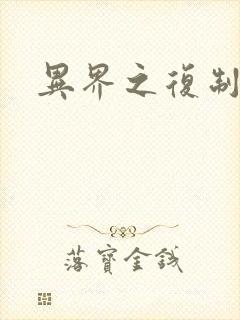 異界之復制
落寶金錢